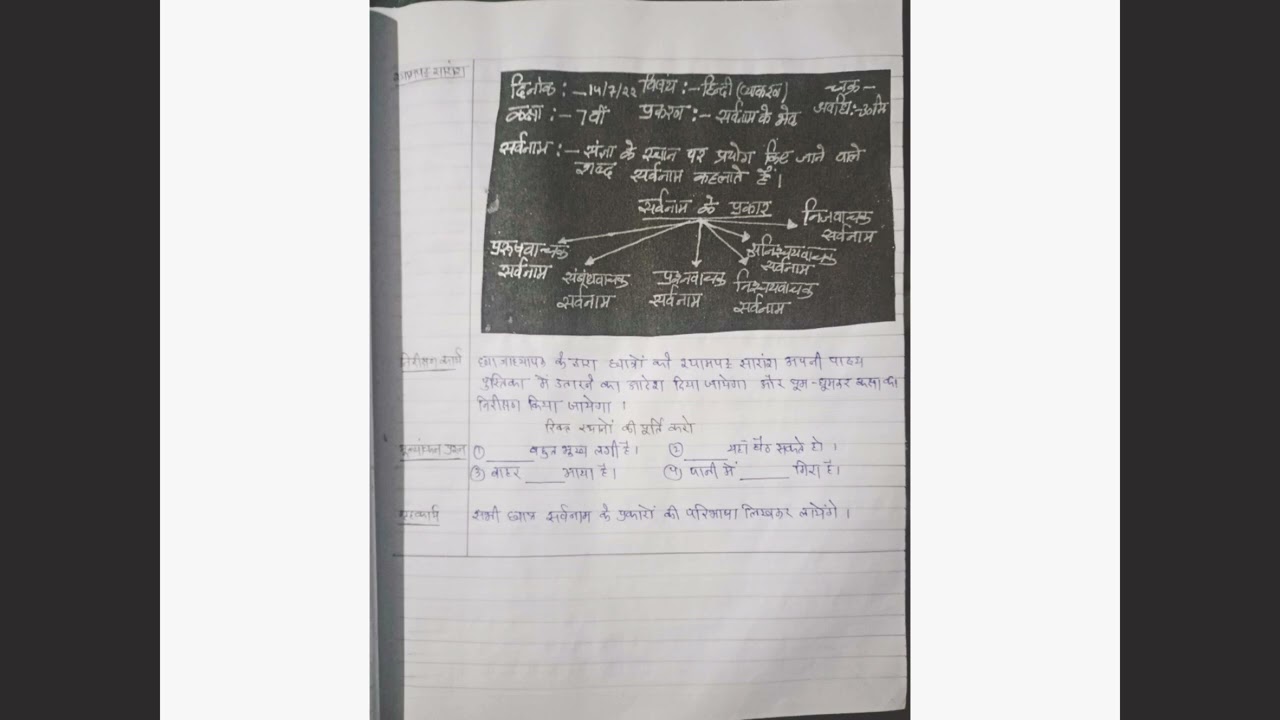 श्यामपट्ट सारांश
दिनांक :- 14/7/22 विषय :- हिन्दी (व्याकरण) चक्र -
कक्षा :- 7वीं प्रकरण :- सर्वनाम के भेद अवधि:-30मि
सर्वनाम :- संज्ञा के स्थान पर प्रयोग किए जाने वाले
शब्द सर्वनाम कहलाते हैं।
सर्वनाम के प्रकार
पुरुषवाचक सर्वनाम
संबंधवाचक सर्वनाम
प्रश्नवाचक सर्वनाम
निश्चयवाचक सर्वनाम
अनिश्चयवाचक सर्वनाम
निजवाचक सर्वनाम
निरीक्षण कार्य छात्राध्यापक के द्वारा छात्रों को श्यामपट्ट सारांश अपनी पाठ्य
पुस्तिका में उतारने का आदेश दिया जायेगा और घूम-घूमकर कक्षा का
निरीक्षण किया जायेगा ।
रिक्त स्थानों की पूर्ति करो
मूल्यांकन प्रश्न ① _____ बहुत भूख लगी है। ② _____ यहाँ बैठ सकते हो ।
③ बाहर _____ आया है। ④ पानी में _____ गिरा है।
गृहकार्य सभी छात्र सर्वनाम के प्रकारों की परिभाषा लिखकर लायेंगे ।